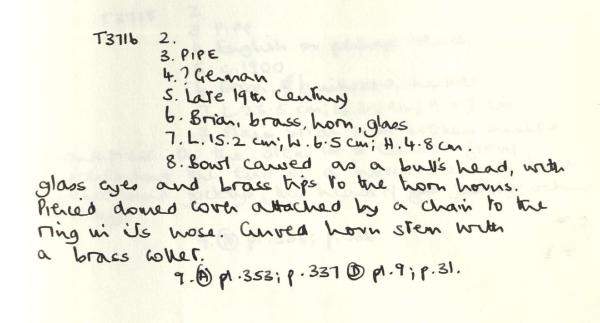 T3716 2.
3. PIPE
4. ? German
5. Late 19th Century
6. Briar, brass, horn, glass
7. L. 15.2 cm; W. 6.5 cm; H. 4.8 cm.
8. Bowl carved as a bull's head, with
glass eyes and brass tips to the horn horns.
Pierced domed cover attached by a chain to the
ring in its nose. Curved horn stem with
a brass collar.
9. Ⓐ pl. 353; p. 337 Ⓓ pl. 9; p. 31.